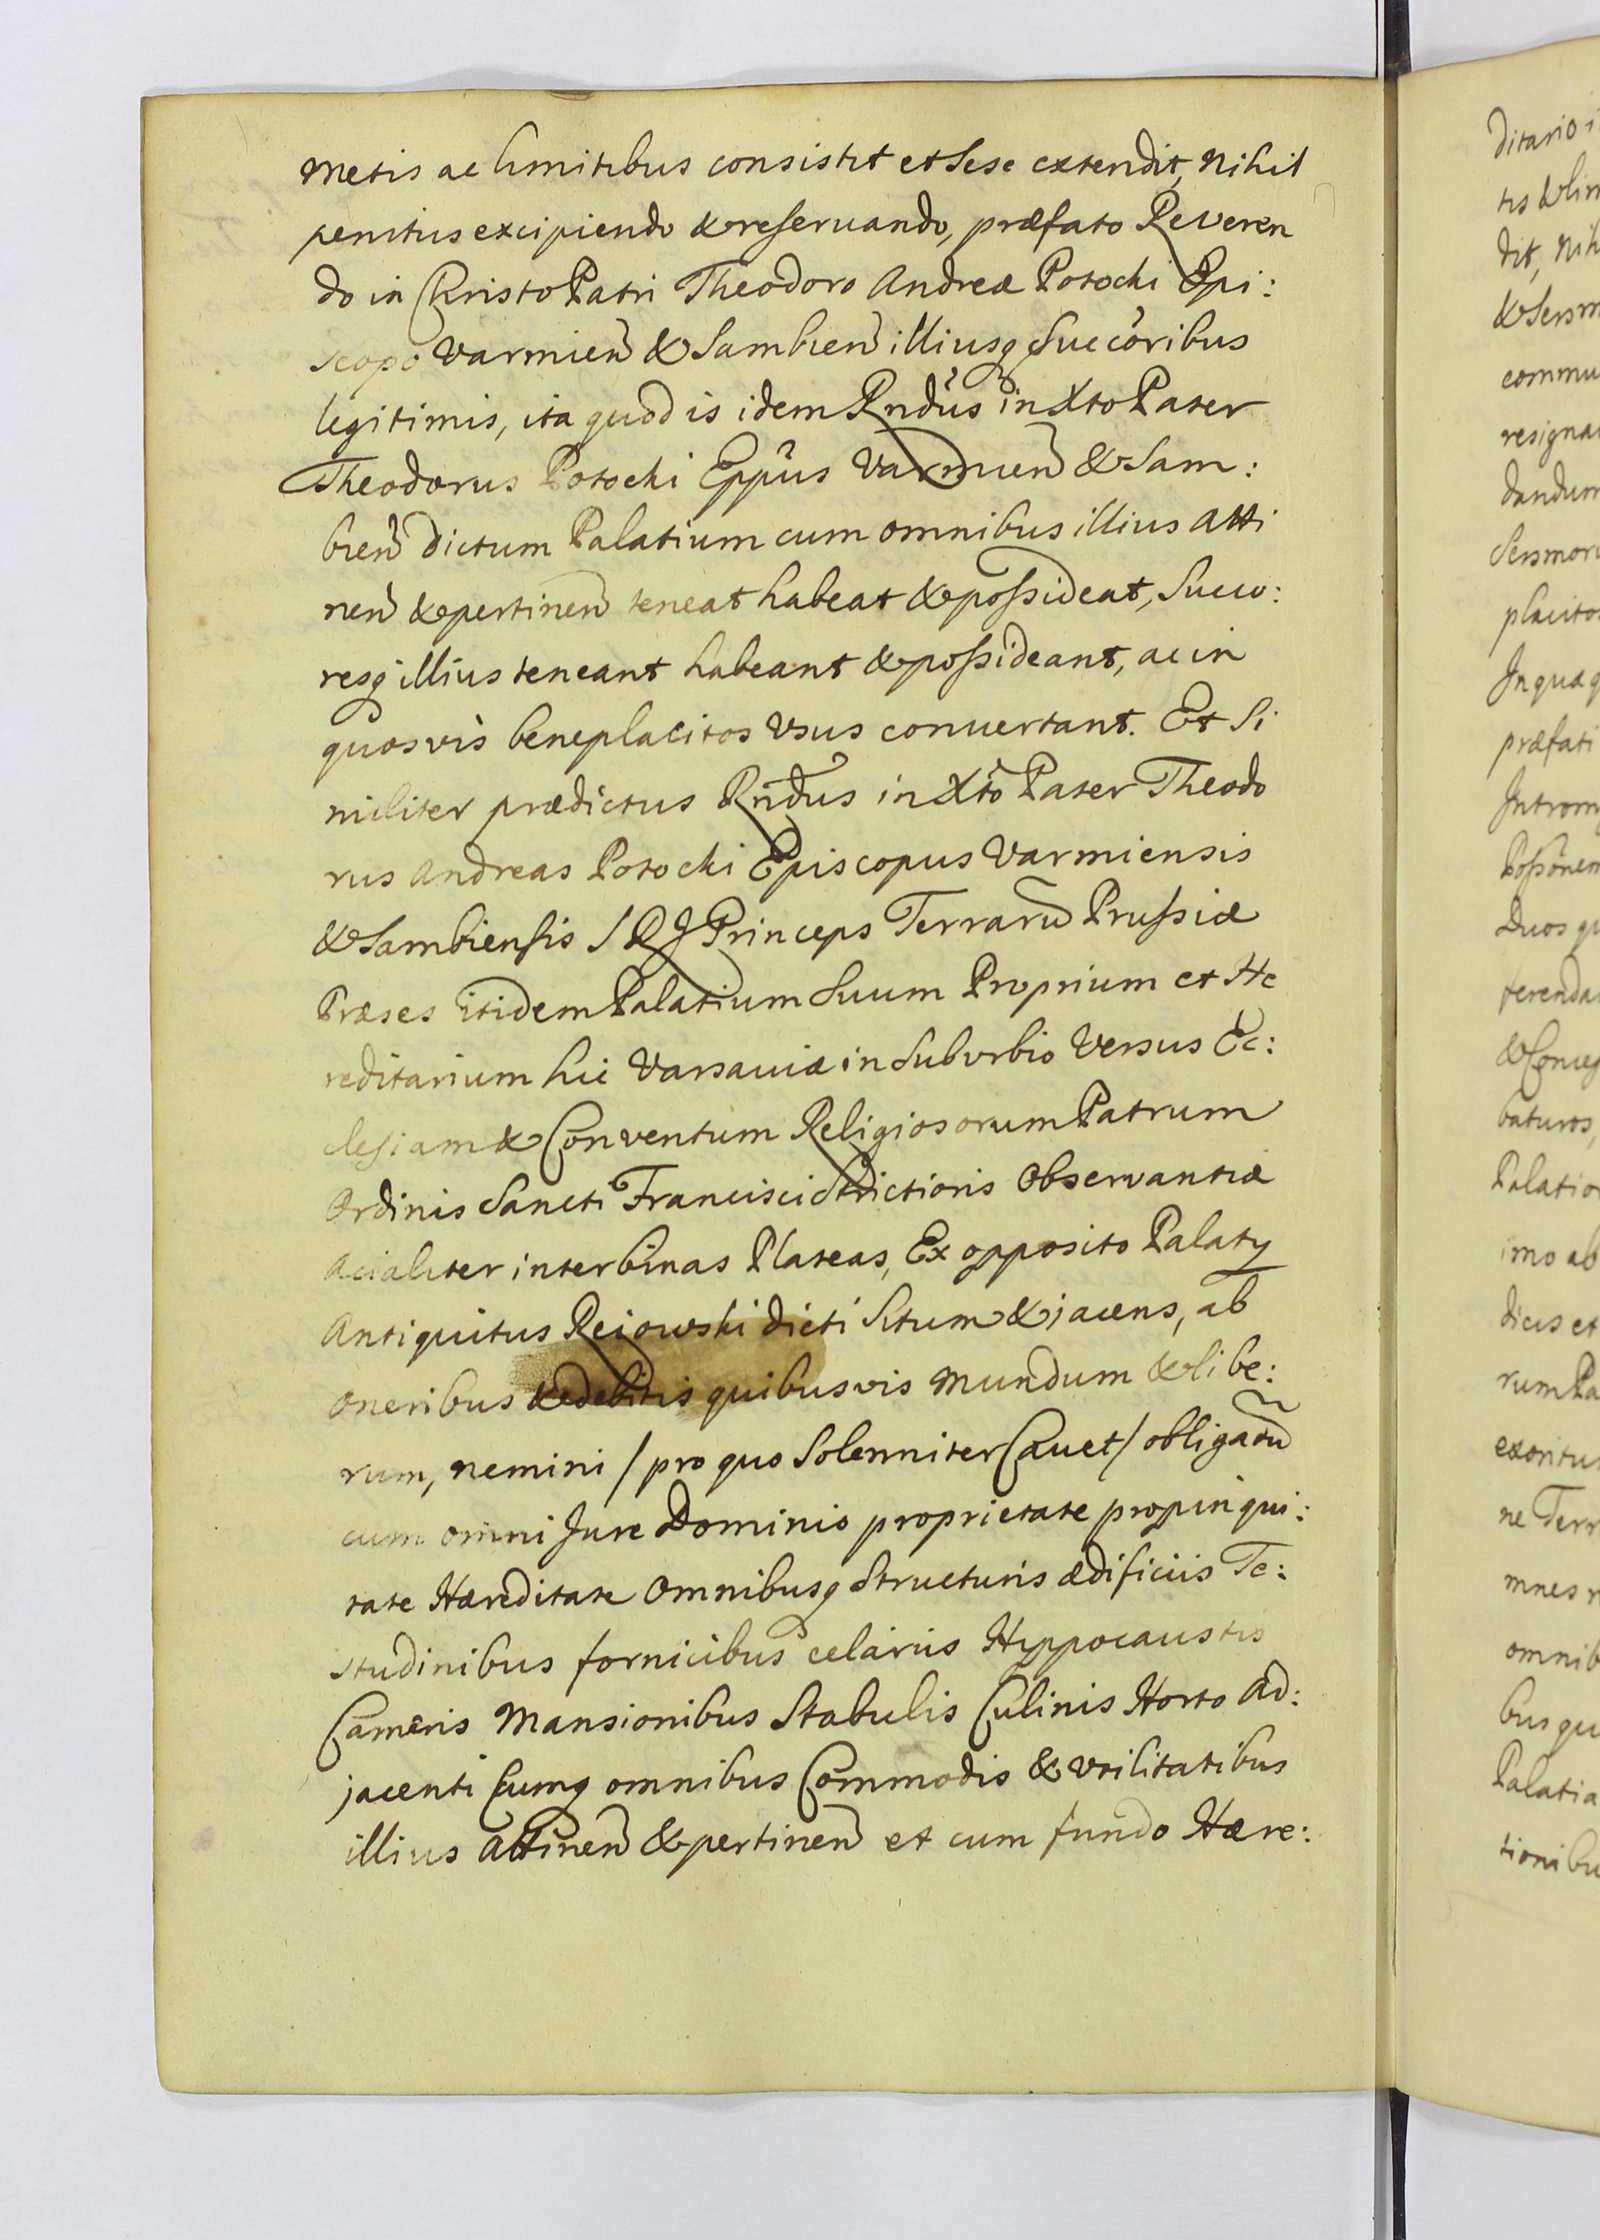 metis ac limitibus consistit et sese extendit, nihil
penitus excipiendo & reservando, præfato Reveren
do in Christo Patri Theodoro Andreæ Potocki Epi:
scopo Varmien & Sambien illiusq Succoribus
legitimis, ita quod is idem Rndus in Xto Pater
Theodorus Potocki Eppus Varmien & Sam:
bien dictum Palatium cum omnibus illius atti
nen & pertinen teneat habeat & possideat, Succo:
resq illius teneant habeant & possideant, ac in
quosvis beneplacitos Usus convertant. Et Si
militer prædictus Rndus in Xto Pater Theodo
rus Andreas Potocki Episcopus Varmiensis
& Sambiensis S R J Princeps Terraru Prussiæ
Præses itidem Palatium Suum Proprium et Hæ
reditarium hic Varsaviæ in Suburbio Versus Ec:
clesiam & Conventum Religiosorum Patrum
Ordinis Sancti Francisci Strictioris Observantiæ
acialiter inter binas Plateas, Ex opposito Palaty
Antiquitus Reiowski dicti Situm & jacens, ab
oneribus & debitis quibusvis mundum & libe:
rum, nemini / pro quo Solenniter Cavet / obligatu
cum omni Jure Dominio proprietate propinqui:
tate Hæreditate Omnibusq Structuris ædificiis Te:
studinibus fornicibus celariis Hyppocaustis
Cameris Mansionibus Stabulis Culinis Horto Ad:
jacenti Cumq omnibus Commodis & utilitatibus
illius attinen & pertinen et cum fundo Hære:
ditario
dit, nih
commu
dandum
præfati
Duos
Palatio
imo ab
dicis et
Palatia